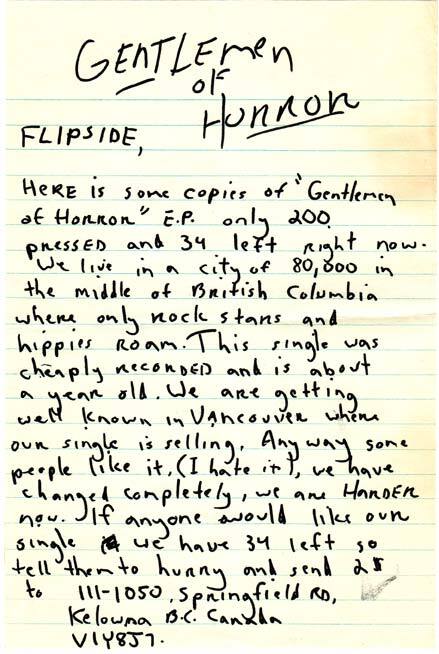 GENTLEmen
of
HORROR
FLIPSIDE,
HERE is some copies of "Gentlemen
of HORROR" E.P. only 200
pressed and 34 left right now.
We live in a city of 80,000 in
the middle of British Columbia
where only rock stars and
hippies roam. This single was
cheaply recorded and is about
a year old. We are getting
well known in VANCOUVER where
our single is selling. Anyway some
people like it, (I hate it), we have
changed completely, we are HARDER
now. If anyone would like our
single we have 34 left so
tell them to hurry and send 2$
to 111-1050, Springfield RD,
Kelowna B.C. Canada
V1Y8J7.